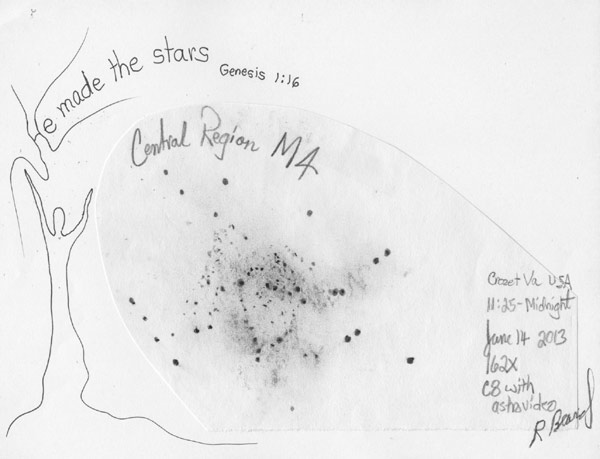 He made the stars Genesis 1:16
Central Region M4
Crozet Va USA
11:25-Midnight
June 14 2013
162X
C8 with
astrovideo
R